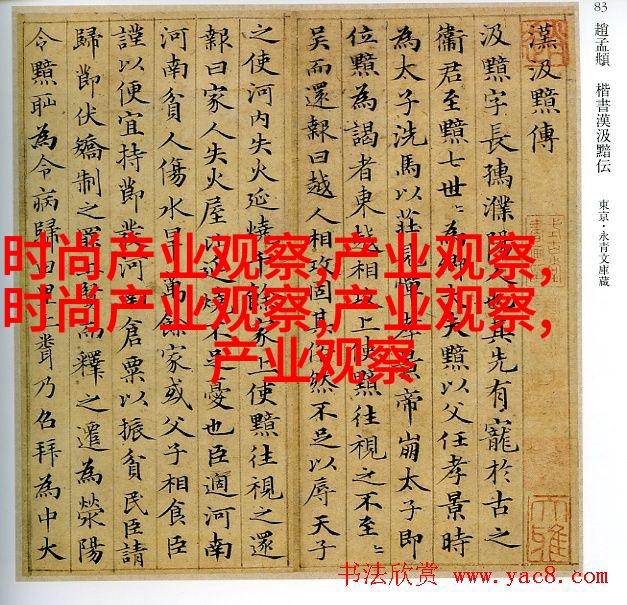 83 趙孟頫 楷書漢汲黯伝 東京・永青文庫蔵
漢汲黯傳
汲黯字長孺濮陽人也其先有寵於古之
衛君至黯七世〻為卿大夫黯以父任孝景時
為太子洗馬以莊見憚孝景帝崩太子即
位黯為謁者東越相攻上使黯往視之不至〻
吳而還報曰越人相攻固其俗然不足以辱天子
之使河内失火延燒千餘家上使黯往視之還
報曰家人失火屋比延燒不足憂也臣適河南
河南貧人傷水旱萬餘家或父子相食臣
謹以便宜持節發河南倉粟以振貧民臣請
歸節伏矯制之罪上賢而釋之遷為滎陽
令黯耻為令病歸田里上聞乃召拜為中大
时尚产业观察,产业观察,
时尚产业观察,产业观察,
产业观察
书法欣赏 www.yac8.com